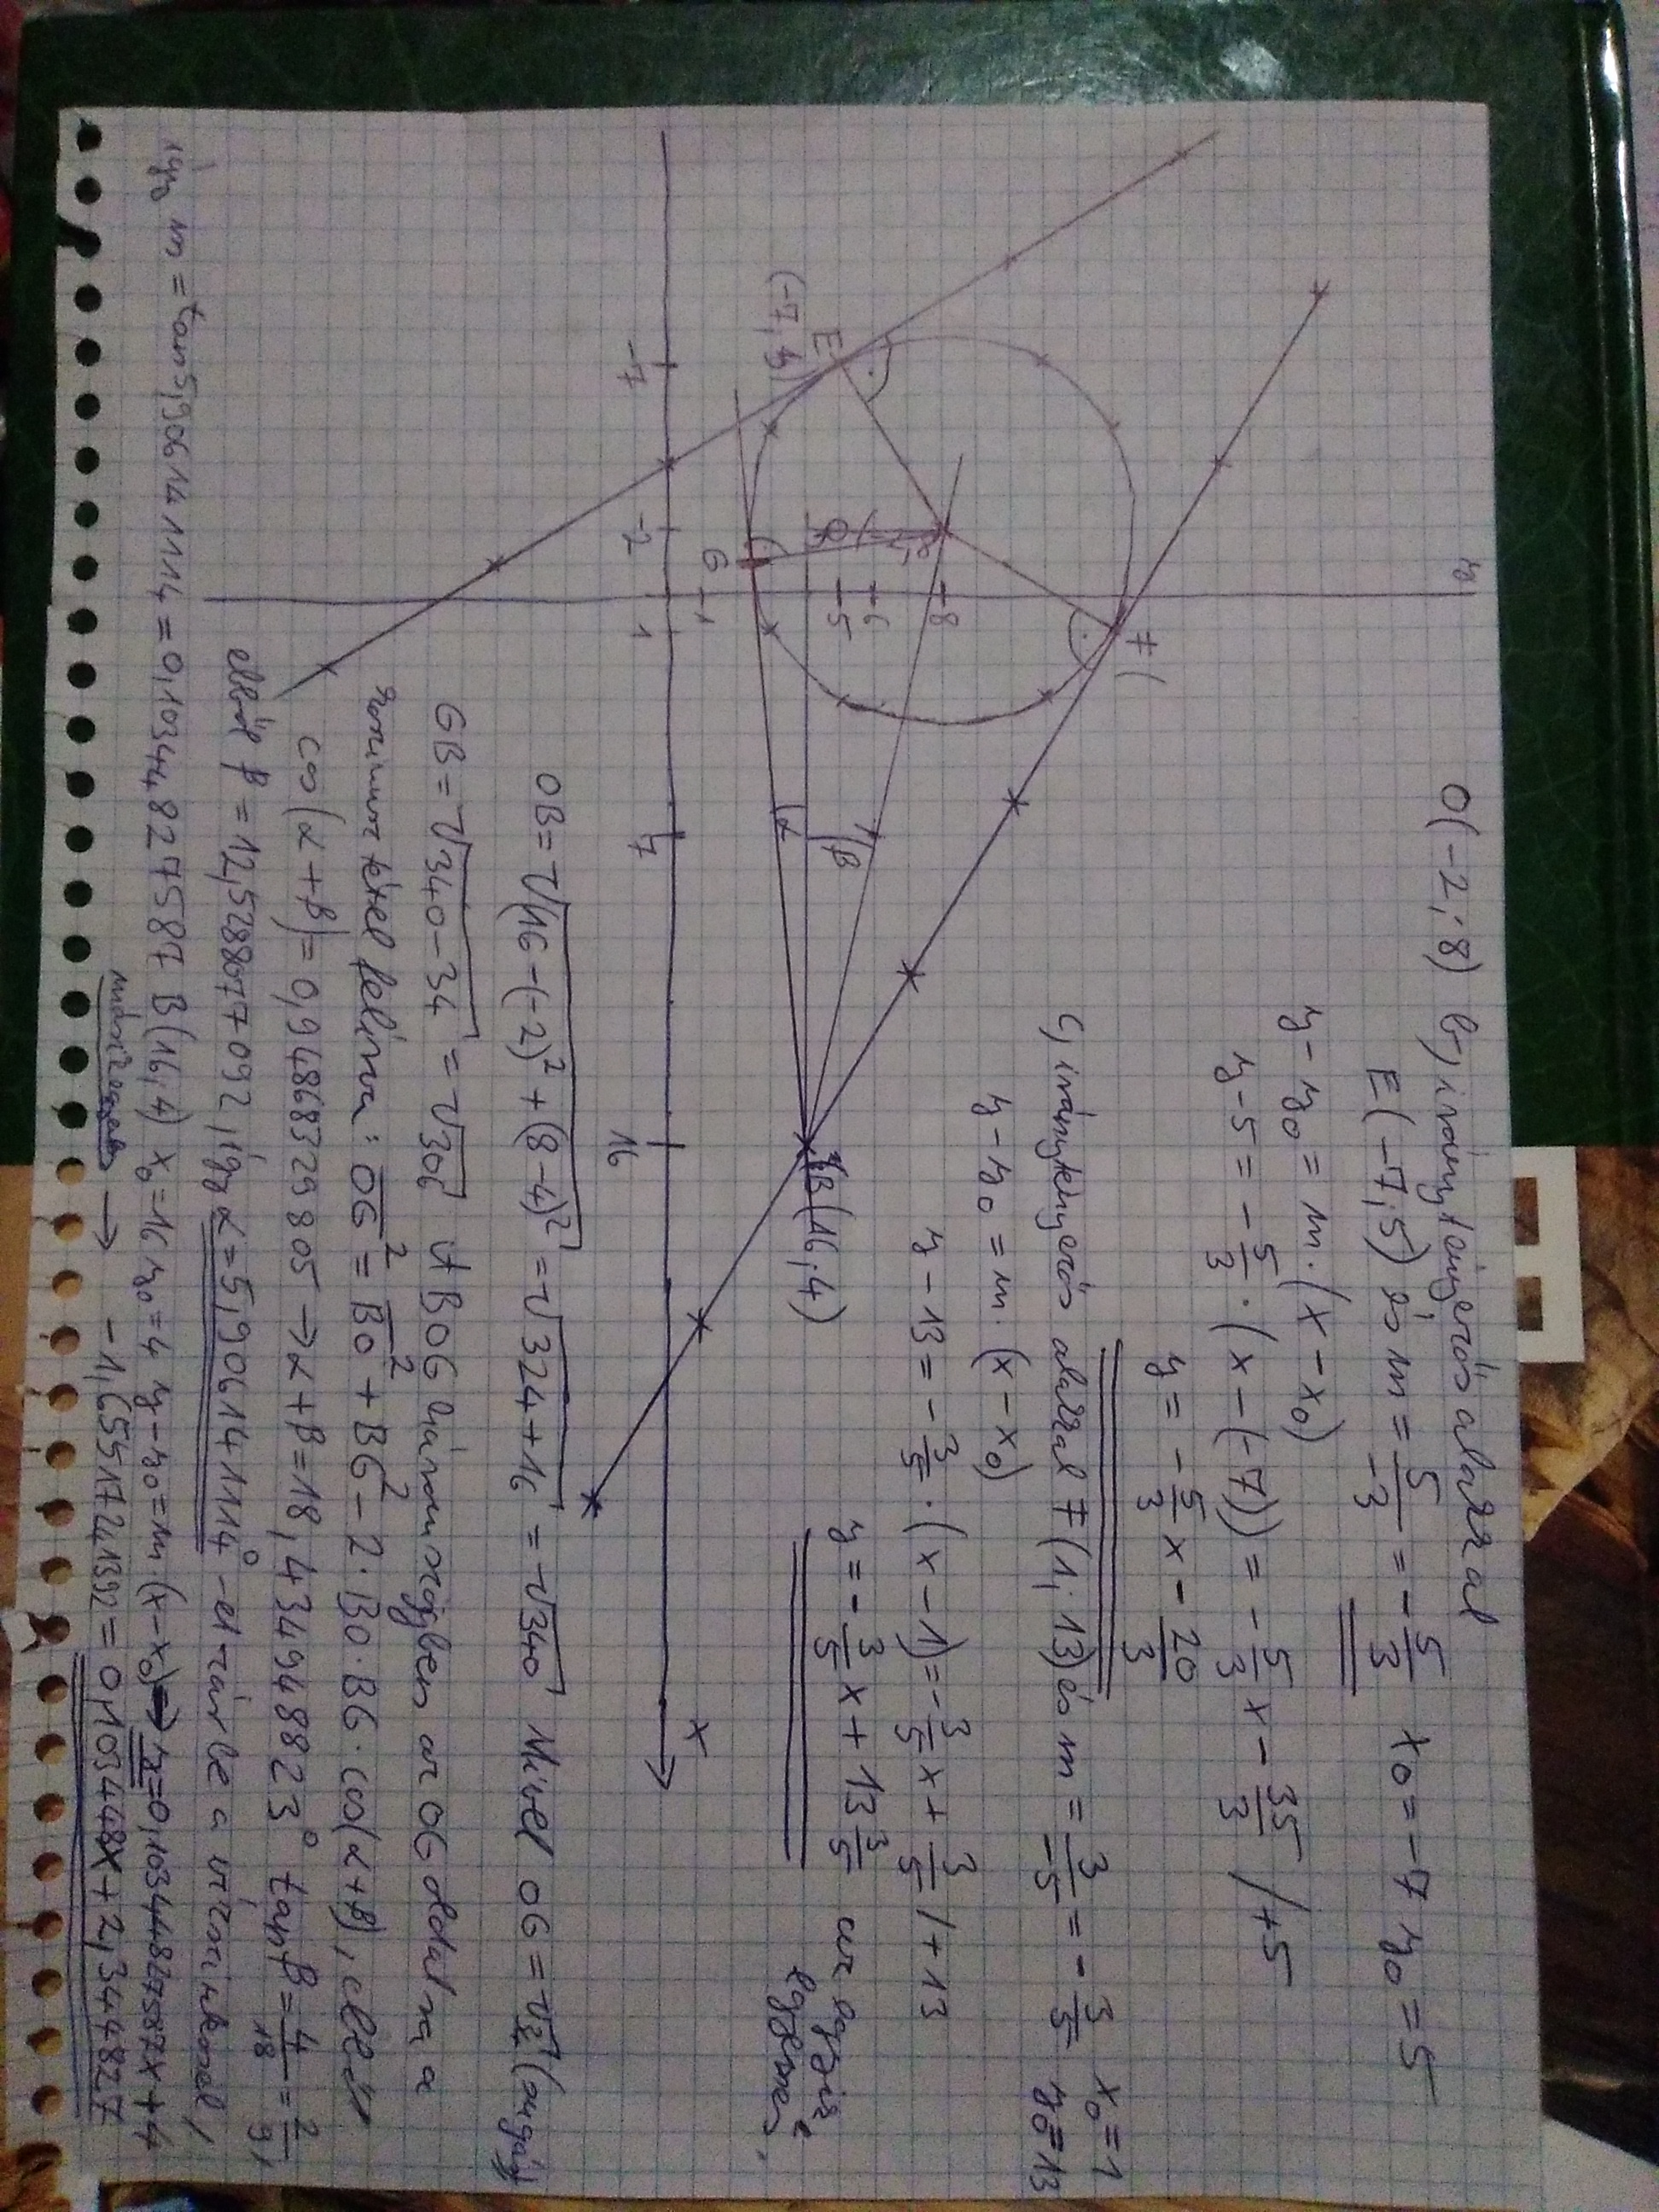 O(-2; 8) b, iránytényezős alakkal
E(-7; 5) és m = 5/-3 = -5/3 x₀ = -7 y₀ = 5
y - y₀ = m · (x - x₀)
y - 5 = -5/3 · (x - (-7)) = -5/3 x - 35/3 / +5
y = -5/3 x - 20/3
c, iránytényezős alakkal F(1; 13) és m = 3/-5 = -3/5 x₀ = 1 y₀ = 13
y - y₀ = m · (x - x₀)
y - 13 = -3/5 · (x - 1) = -3/5 x + 3/5 / + 13
y = -3/5 x + 13 3/5 az egyik egyenes,
y
F(
8
6
5
E
(-7; 5)
β
α
B(16; 4)
G
1
-7
-2
1
7
16
x
OB = √(16 - (-2)² + (8 - 4)² = √324 + 16 = √340 Mivel OG = √34 (sugár)
GB = √340 - 34 = √306 A BOG háromszögben az OG oldalra a
koszinusz tétel felírva: OG² = BO² + BG² - 2 · BO · BG · cos(α + β), ebből
cos(α + β) = 0,9486832980 5 → α + β = 18,43494882 3° tanβ = 4/18 = 2/9,
ebből β = 12,5288077 092, így α = 5,906141114° -et zár be a vízszintessel,
így m = tan 5,906141114 = 0,1034482 7587 B(16; 4) x₀ = 16 y₀ = 4 y - y₀ = m · (x - x₀) → y = 0,10344827587x + 4
-1,6551724 1392 = 0,103448x + 2,344827
második egyenes →